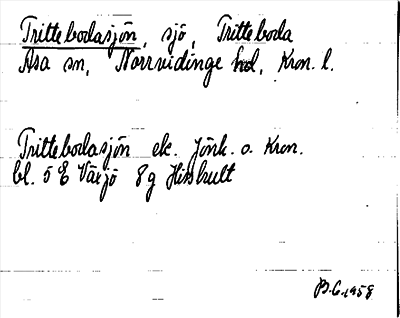 Trittebodasjön, sjö, Tritteboda
Asa sn, Norrvidinge hd, Kron. l.
Trittebodasjön ek. Jönk. o. Kron.
bl. 5 E Växjö 8 g Hisshult
B.G. 1958